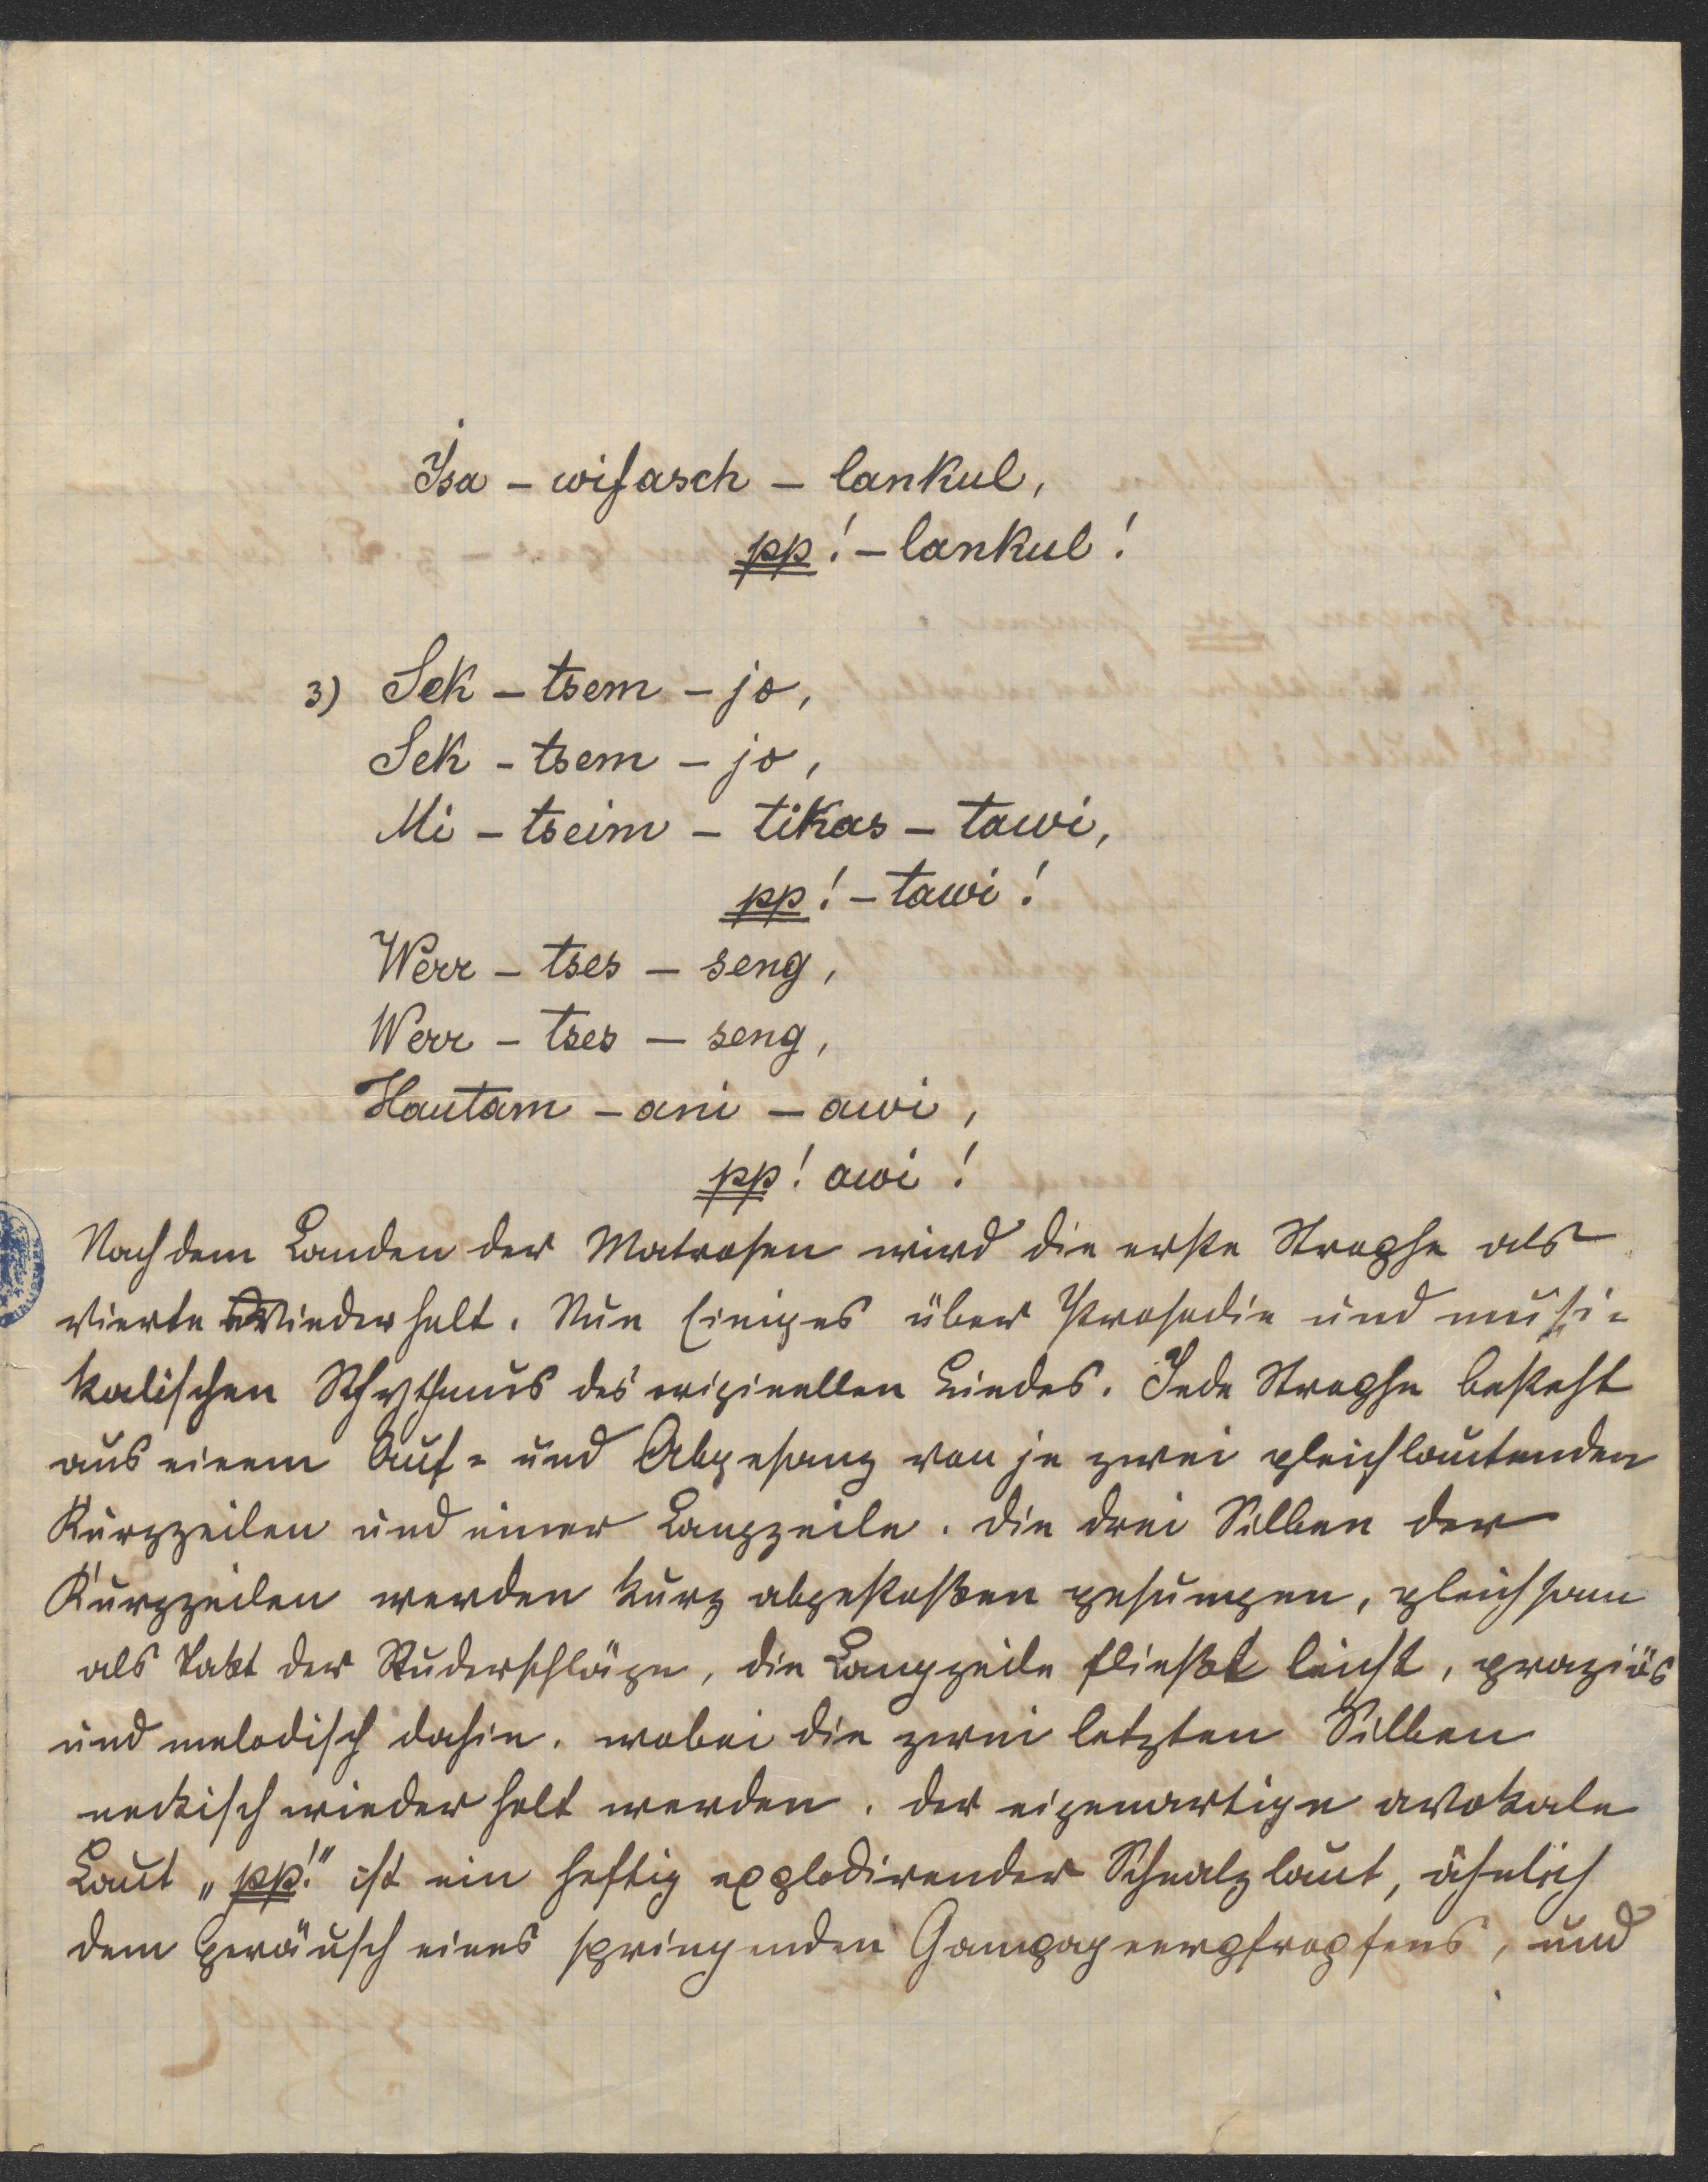 Isa – wifasch – lankul,
pp! – lankul!
3) Sek – tsem – jo,
Sek – tsem – jo,
Mi – tseim – tikas – tawi,
pp! – tawi!
Werr – tses – seng,
Werr – tses – seng,
Hautam – ani – awi,
pp! awi!
Nach dem Landen der Matrosen wird die erste Strophe als
vierte wiederholt. Nun Einiges über Prosodie und musi-
kalischen Rhythmus des originellen Liedes. Jede Strophe besteht
aus einem Auf- und Abgesang von je zwei gleichlautenden
Kurzzeilen und einer Langzeile. Die drei Silben der
Kurzzeilen werden kurz abgestoßen gesungen, gleichsam
als Takt der Ruderschläge, die Langzeile fließt leicht, graziös
und melodisch dahin, wobei die zwei letzten Silben
neckisch wiederholt werden. Der eigenartige avokale
Laut „pp!" ist ein heftig explodirender Schnalzlaut, ähnlich
dem Geräusch eines springenden Gampagnerpfropfens, und